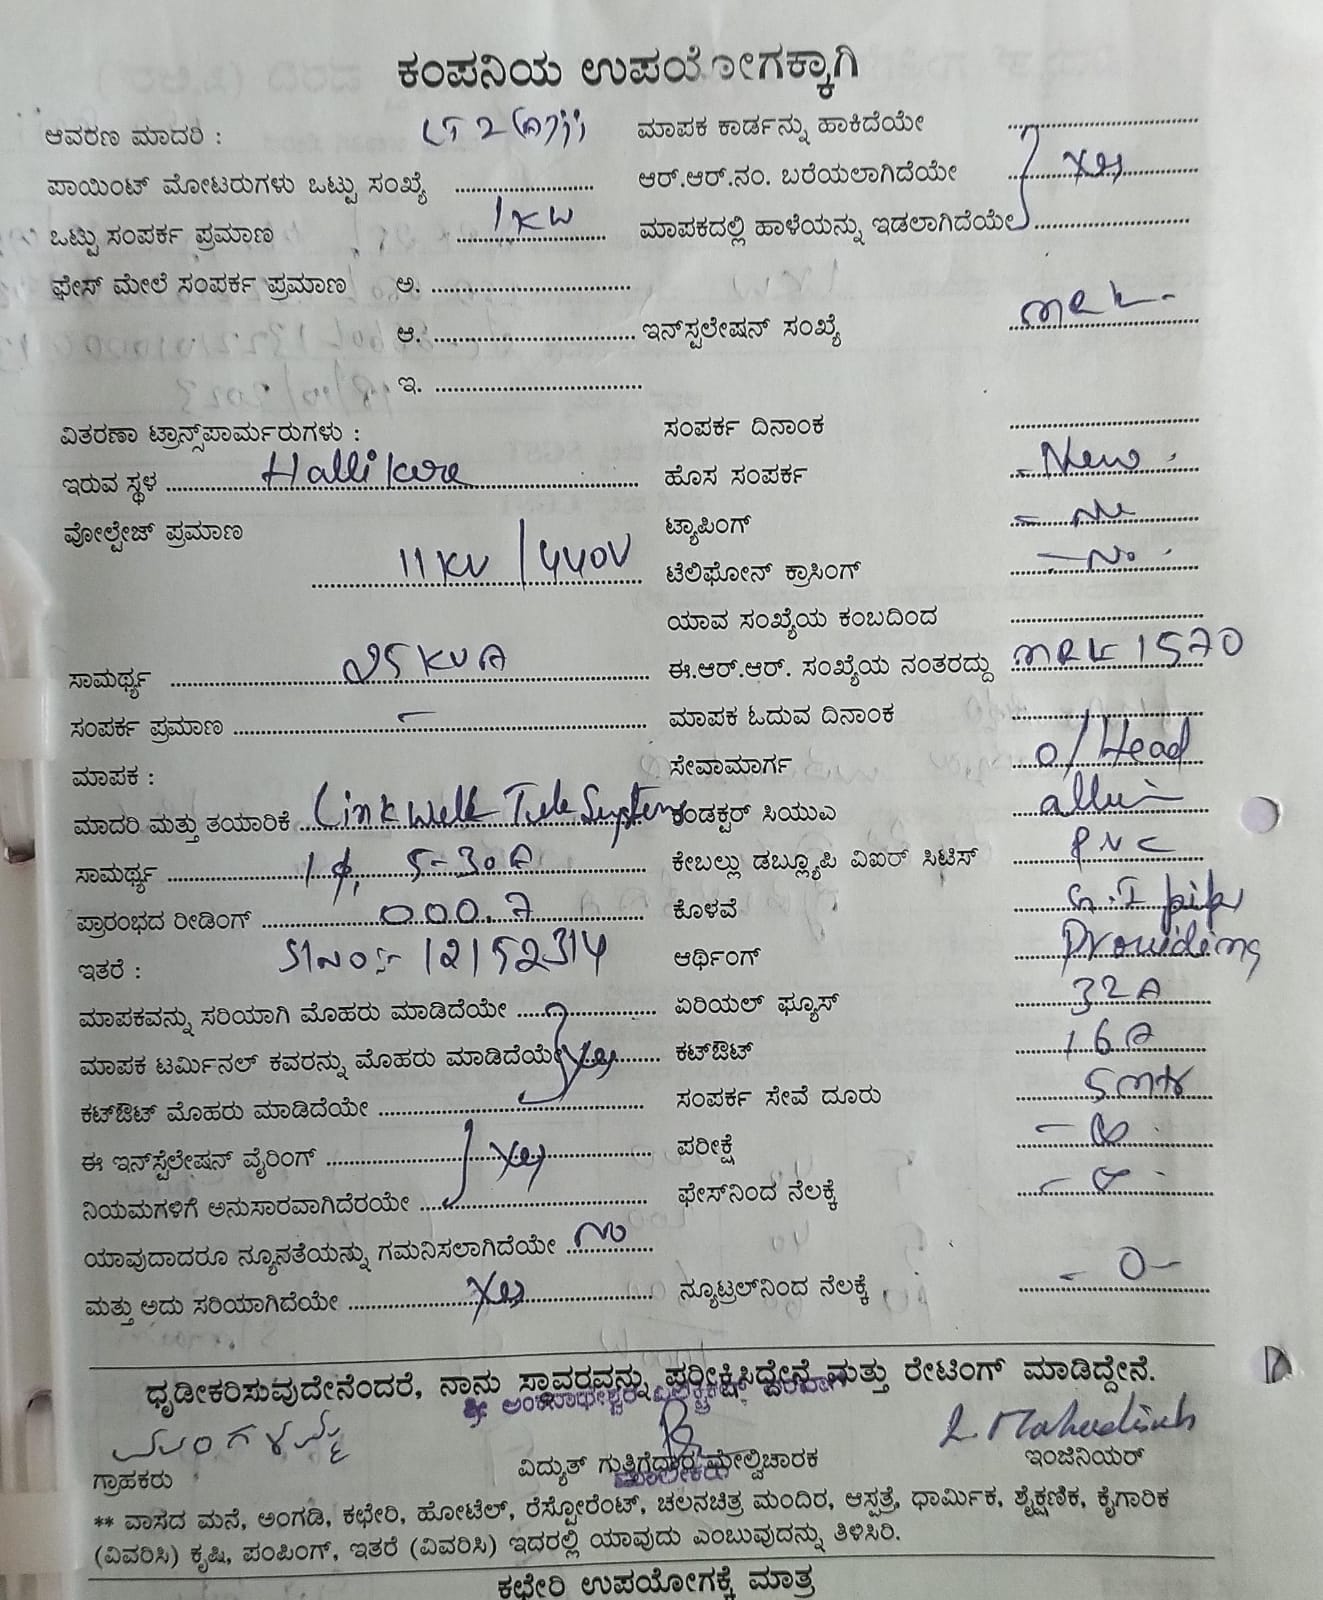 ಕಂಪನಿಯ ಉಪಯೋಗಕ್ಕಾಗಿ
ಆವರಣ ಮಾದರಿ : LT 2(a)ii ಮಾಪಕ ಕಾರ್ಡನ್ನು ಹಾಕಿದೆಯೇ
ಪಾಯಿಂಟ್ ಮೋಟರುಗಳು ಒಟ್ಟು ಸಂಖ್ಯೆ ಆರ್.ಆರ್.ನಂ. ಬರೆಯಲಾಗಿದೆಯೇ yes
ಒಟ್ಟು ಸಂಪರ್ಕ ಪ್ರಮಾಣ 1KW ಮಾಪಕದಲ್ಲಿ ಹಾಳೆಯನ್ನು ಇಡಲಾಗಿದೆಯೇ
ಫೇಸ್ ಮೇಲೆ ಸಂಪರ್ಕ ಪ್ರಮಾಣ ಅ.
ಆ. ಇನ್‌ಸ್ಟಲೇಷನ್ ಸಂಖ್ಯೆ MRK -
ಇ.
ವಿತರಣಾ ಟ್ರಾನ್ಸ್‌ಪಾರ್ಮರುಗಳು : ಸಂಪರ್ಕ ದಿನಾಂಕ
ಇರುವ ಸ್ಥಳ Hallikere ಹೊಸ ಸಂಪರ್ಕ - New
ವೋಲ್ಟೇಜ್ ಪ್ರಮಾಣ ಟ್ಯಾಪಿಂಗ್
11KV / 440V ಟೆಲಿಫೋನ್ ಕ್ರಾಸಿಂಗ್ - No
ಯಾವ ಸಂಖ್ಯೆಯ ಕಂಬದಿಂದ
ಸಾಮರ್ಥ್ಯ 25 KVA ಈ.ಆರ್.ಆರ್. ಸಂಖ್ಯೆಯ ನಂತರದ್ದು MRK 1570
ಸಂಪರ್ಕ ಪ್ರಮಾಣ - ಮಾಪಕ ಓದುವ ದಿನಾಂಕ
ಮಾಪಕ : ಸೇವಾಮಾರ್ಗ O/Head
ಮಾದರಿ ಮತ್ತು ತಯಾರಿಕೆ Linkwell Tele System ಕಂಡಕ್ಟರ್ ಸಿಯುಎ
ಸಾಮರ್ಥ್ಯ 1φ, 5-30A ಕೇಬಲ್ಲು ಡಬ್ಲ್ಯೂಪಿ ವಿಐರ್ ಸಿಟಿಸ್ PVC
ಪ್ರಾರಂಭದ ರೀಡಿಂಗ್ 000.7 ಕೊಳವೆ G.I pipe
ಇತರೆ : Sl No :- 12152314 ಆರ್ಥಿಂಗ್ Providing
ಮಾಪಕವನ್ನು ಸರಿಯಾಗಿ ಮೊಹರು ಮಾಡಿದೆಯೇ ಏರಿಯಲ್ ಫ್ಯೂಸ್ 32A
ಮಾಪಕ ಟರ್ಮಿನಲ್ ಕವರನ್ನು ಮೊಹರು ಮಾಡಿದೆಯೇ yes ಕಟ್‌ಔಟ್ 16A
ಕಟ್‌ಔಟ್ ಮೊಹರು ಮಾಡಿದೆಯೇ ಸಂಪರ್ಕ ಸೇವೆ ದೂರು 5 mtr
ಈ ಇನ್‌ಸ್ಟೆಲೇಷನ್ ವೈರಿಂಗ್ yes ಪರೀಕ್ಷೆ
ನಿಯಮಗಳಿಗೆ ಅನುಸಾರವಾಗಿದೆರಯೇ ಫೇಸ್‌ನಿಂದ ನೆಲಕ್ಕೆ
ಯಾವುದಾದರೂ ನ್ಯೂನತೆಯನ್ನು ಗಮನಿಸಲಾಗಿದೆಯೇ No
ಮತ್ತು ಅದು ಸರಿಯಾಗಿದೆಯೇ yes ನ್ಯೂಟ್ರಲ್‌ನಿಂದ ನೆಲಕ್ಕೆ - 0 -
ಧೃಡೀಕರಿಸುವುದೇನೆಂದರೆ, ನಾನು ಸ್ಥಾವರವನ್ನು ಪರೀಕ್ಷಿಸಿದ್ದೇನೆ ಮತ್ತು ರೇಟಿಂಗ್ ಮಾಡಿದ್ದೇನೆ.
ಗ್ರಾಹಕರು ವಿದ್ಯುತ್ ಗುತ್ತಿಗೆದಾರ ಮೇಲ್ವಿಚಾರಕ ಇಂಜಿನಿಯರ್
** ವಾಸದ ಮನೆ, ಅಂಗಡಿ, ಕಛೇರಿ, ಹೋಟೆಲ್, ರೆಸ್ಟೋರೆಂಟ್, ಚಲನಚಿತ್ರ ಮಂದಿರ, ಆಸ್ಪತ್ರೆ, ಧಾರ್ಮಿಕ, ಶೈಕ್ಷಣಿಕ, ಕೈಗಾರಿಕ
(ವಿವರಿಸಿ) ಕೃಷಿ, ಪಂಪಿಂಗ್, ಇತರೆ (ವಿವರಿಸಿ) ಇದರಲ್ಲಿ ಯಾವುದು ಎಂಬುವುದನ್ನು ತಿಳಿಸಿರಿ.
ಕಛೇರಿ ಉಪಯೋಗಕ್ಕೆ ಮಾತ್ರ